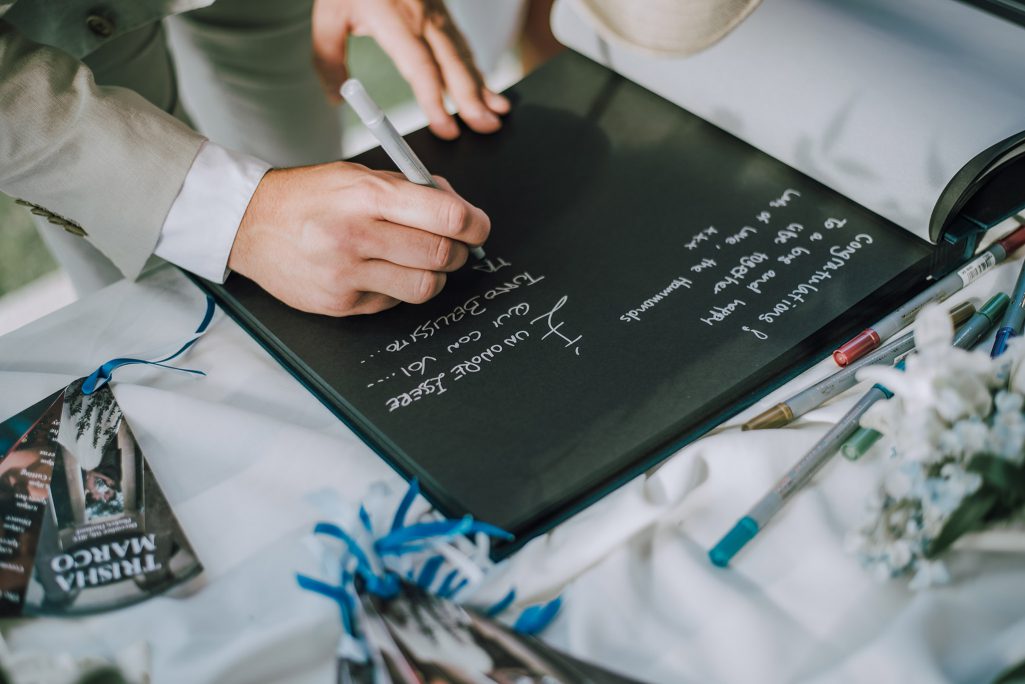 Congratulations!
To a life long and happy
together
Lots of love, the Hammonds
xxx
È UN ONORE ESSERE
QUI CON VOI....
TUTTO BELLISSIMO....
TA
TRISHA
MARCO
Phuket, Thailand